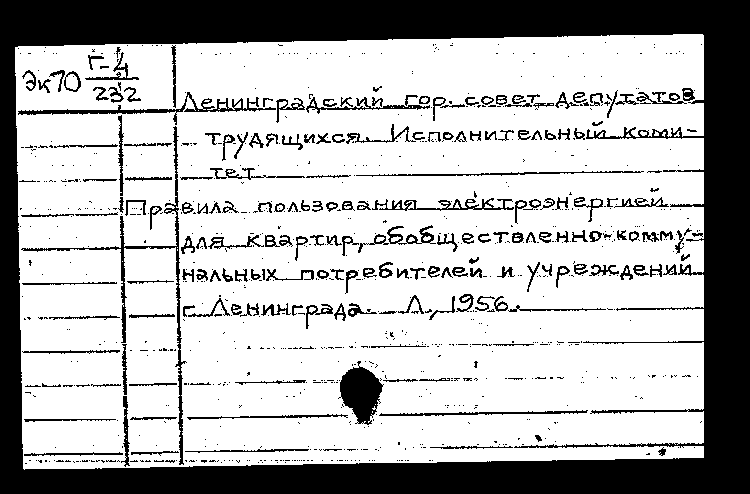 Эк70 Г-4
232
Ленинградский гор. совет депутатов
трудящихся. Исполнительный коми-
тет
Правила пользования электроэнергией
для квартир, обобществленно-комму-
нальных потребителей и учреждений
г. Ленинграда. Л., 1956.